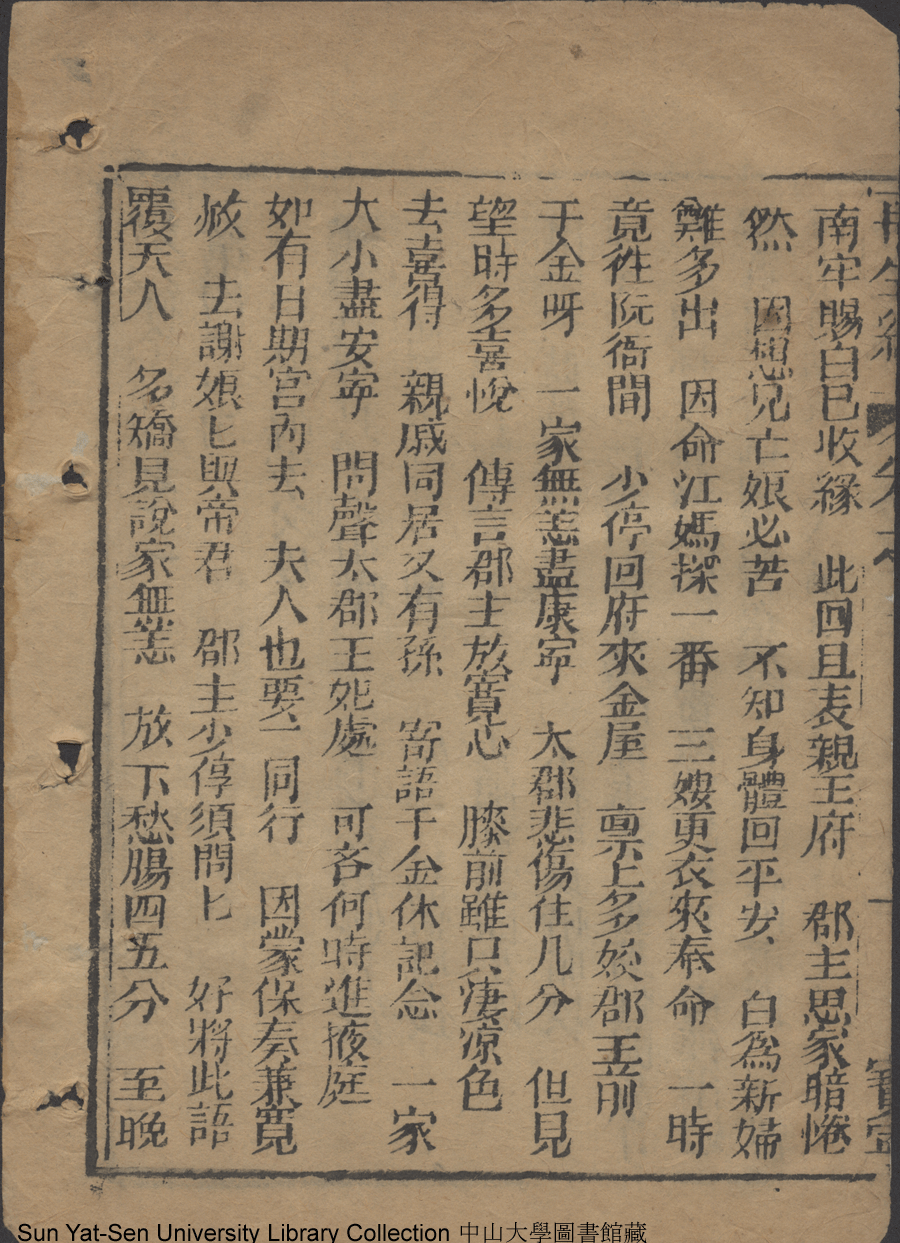 再生緣
南牢賜自已收緣　此回且表親王府　郡主思家暗惓
然　因想兄亡娘必苦　不知身體回平安　自為新婦
難多出　因命江媽探一番　三嫂更衣來奉命　一時
竟徃阮衙間　少停回府來金屋　禀上多嬌郡主前
千金呀　一家無恙盡康寧　太郡悲傷住几分　但見
望時多喜悅　傳言郡主放寬心　膝前雖只凄凉色
去喜得　親戚同居又有孫　寄語千金休記念　一家
大小盡安寧　問聲太郡王妃處　可吝何時進掖庭
如有日期宮內去　夫人也要一同行　因蒙保奏兼寬
赦　去謝娘匕與帝君　郡主少停須問匕　好將此語
覆夫人　多矯見說家無恙　放下愁腸四五分　至晚
Sun Yat-Sen University Library Collection 中山大學圖書館藏